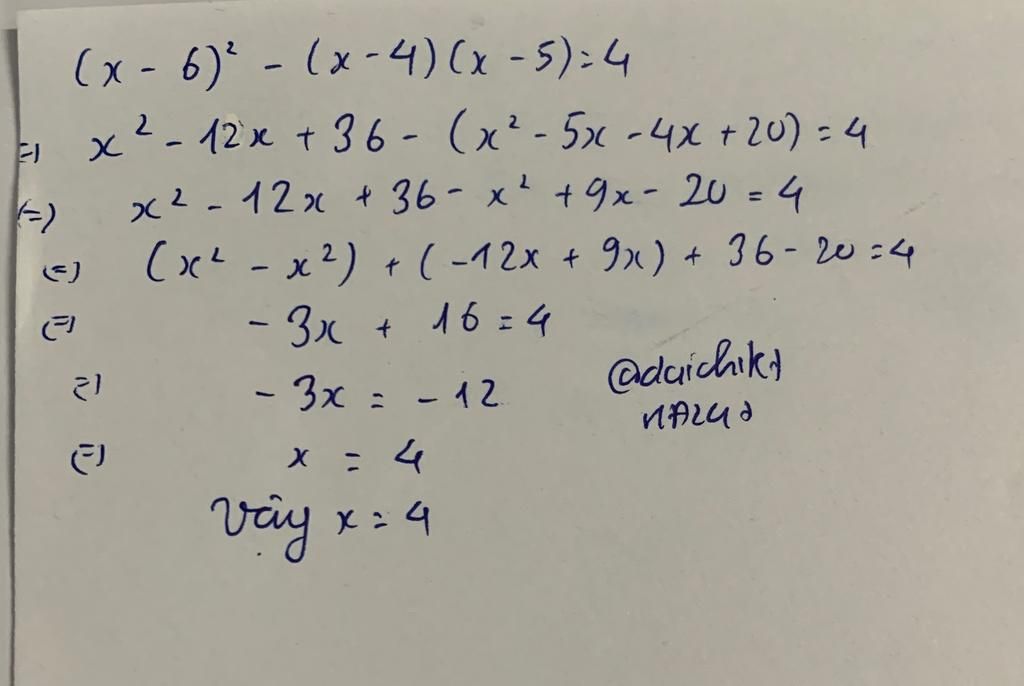 (x - 6)² - (x - 4)(x - 5) = 4
=) x² - 12x + 36 - (x² - 5x - 4x + 20) = 4
(=) x² - 12x + 36 - x² + 9x - 20 = 4
(=) (x² - x²) + (-12x + 9x) + 36 - 20 = 4
(=) - 3x + 16 = 4
=) - 3x = - 12
(=) x = 4
Vậy x = 4